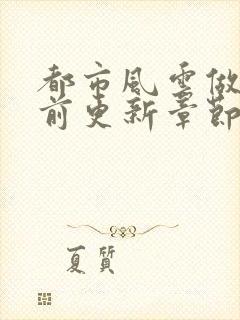 都市風雲做
前更新章節
夏質